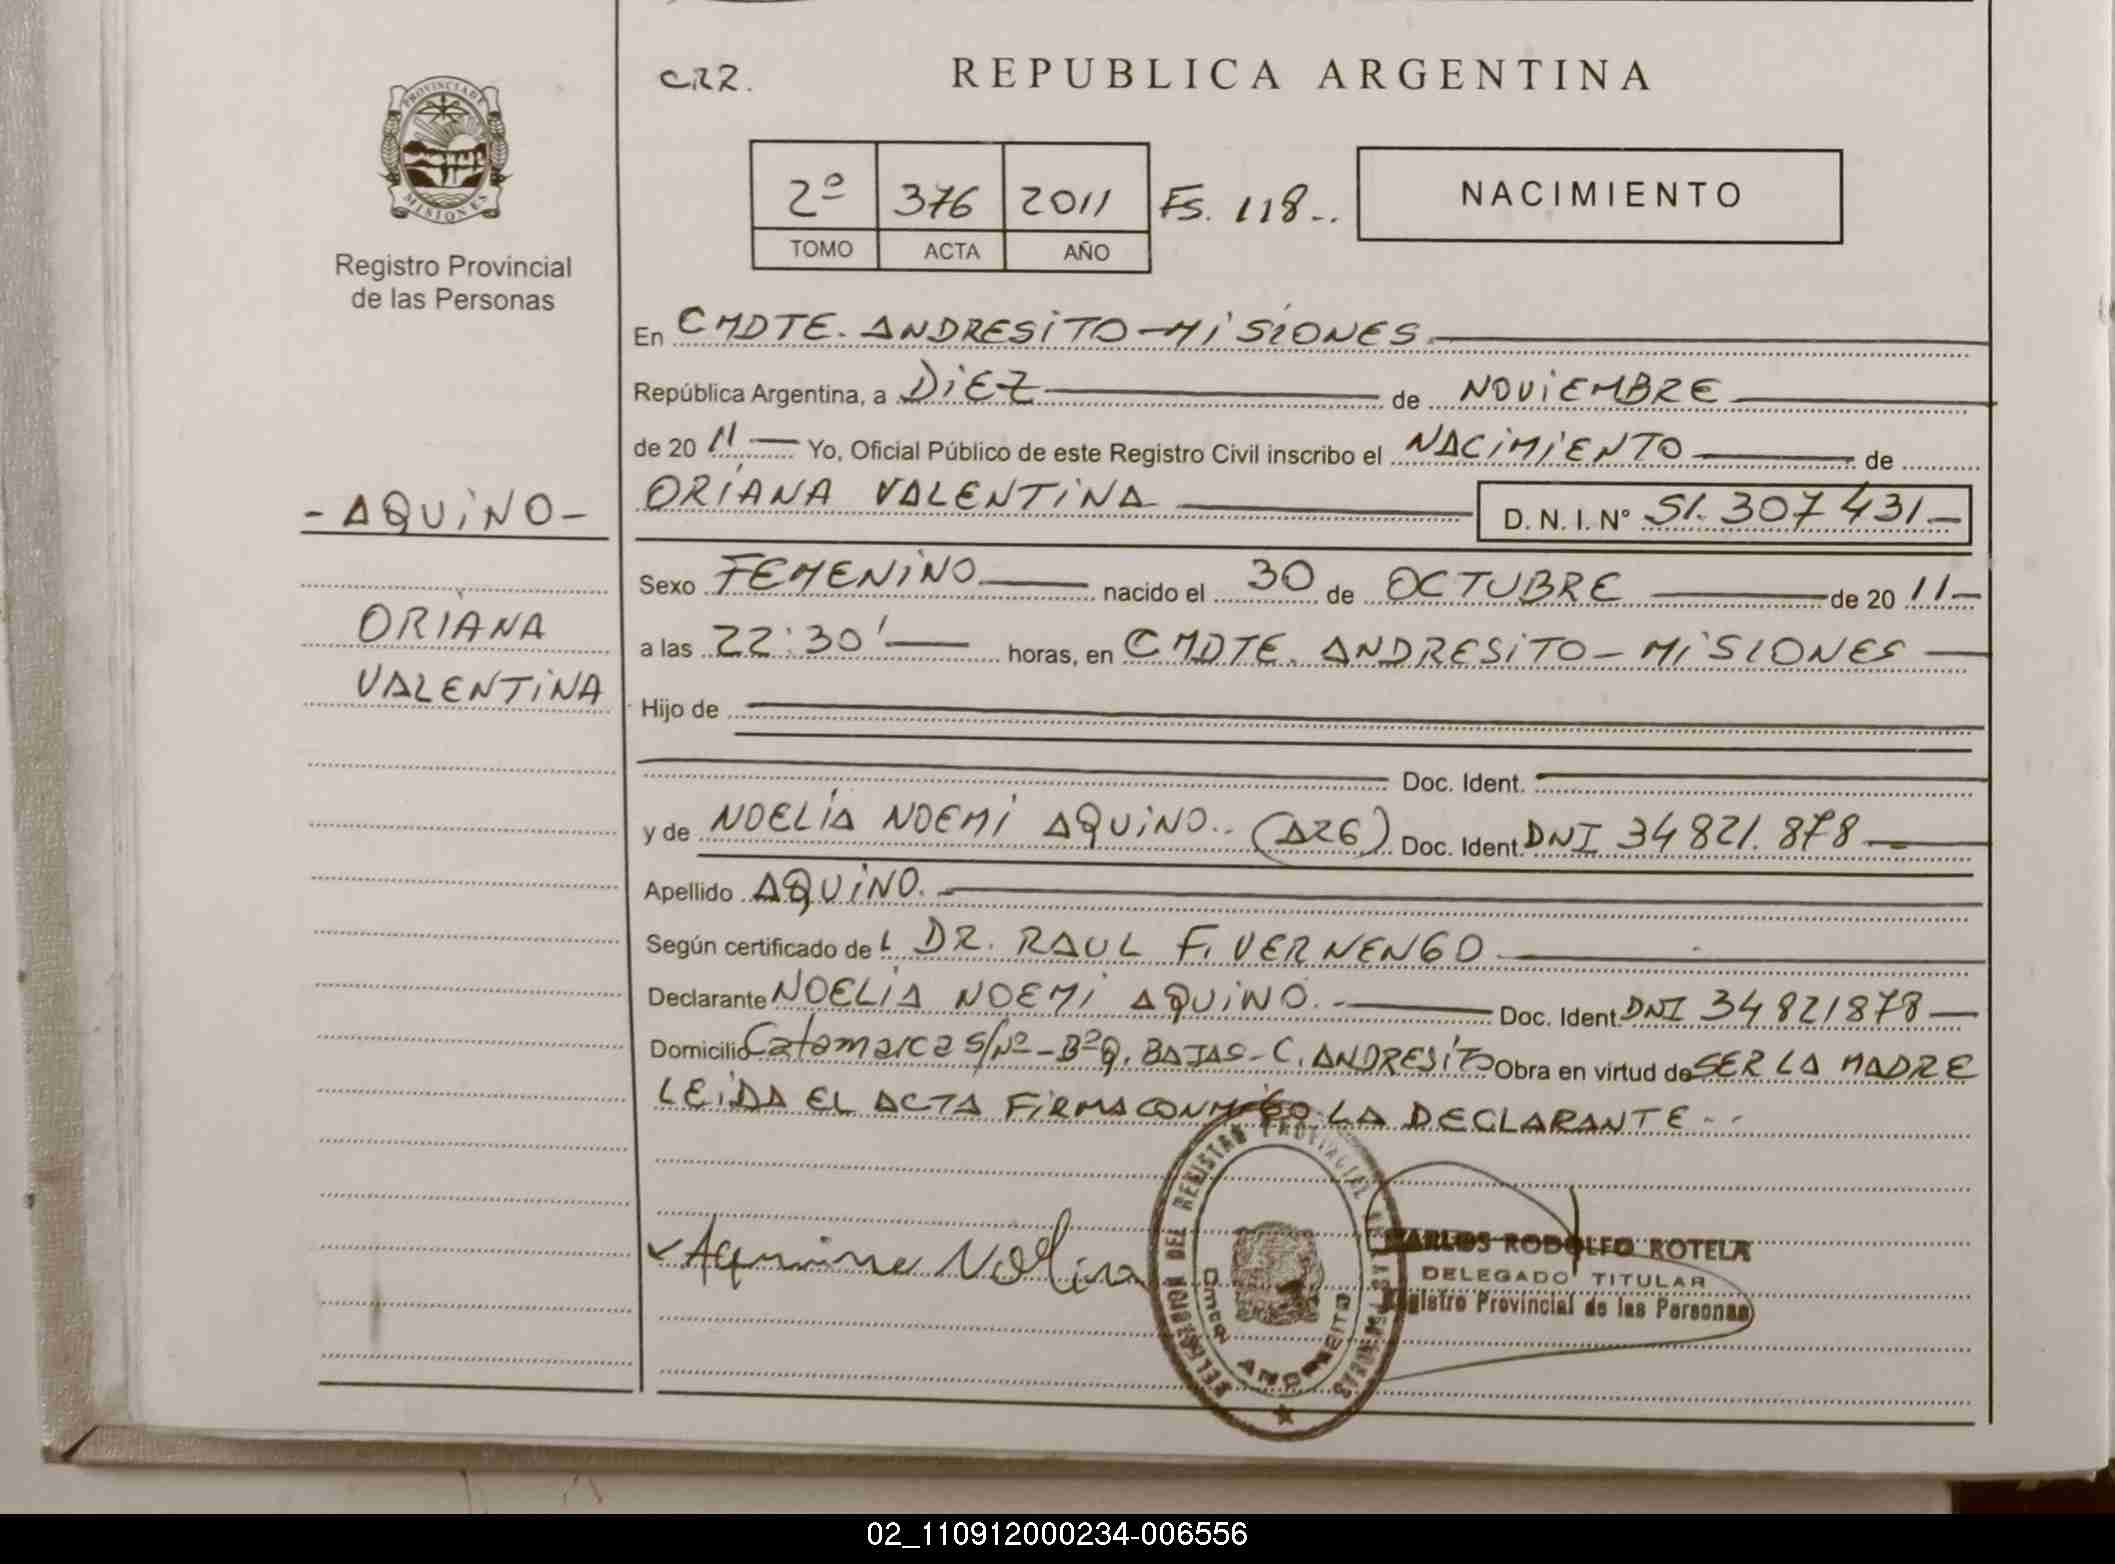 PROVINCIA DE
MISIONES
Registro Provincial
de las Personas
- AQUINO -
ORIANA
VALENTINA
CRR.
REPUBLICA ARGENTINA
2º 376 2011 Fs. 118..
TOMO ACTA AÑO
NACIMIENTO
En CMDTE. ANDRESITO - MISIONES.
República Argentina, a DIEZ de NOVIEMBRE
de 20 11 Yo, Oficial Público de este Registro Civil inscribo el NACIMIENTO de
ORIANA VALENTINA D. N. I. N° 51.307431
Sexo FEMENINO nacido el 30 de OCTUBRE de 20 11
a las 22:30' horas, en CMDTE. ANDRESITO - MISIONES
Hijo de
Doc. Ident.
y de NOELIA NOEMI AQUINO.. (ARG) Doc. Ident. DNI 34821.878
Apellido AQUINO.
Según certificado de L DR. RAUL F. VERNENGO
Declarante NOELIA NOEMI AQUINO. Doc. Ident. DNI 34821878
Domicilio Catamarca S/Nº - Bº Q. BAJAS - C. ANDRESITO Obra en virtud de SER LA MADRE
LEIDA EL ACTA FIRMA CONMIGO LA DECLARANTE..
Aquino Noelia
DELEGACION DEL REGISTRO PROVINCIAL DE LAS PERSONAS
ANDRESITO
CARLOS RODOLFO ROTELA
DELEGADO TITULAR
Registro Provincial de las Personas
02_110912000234-006556